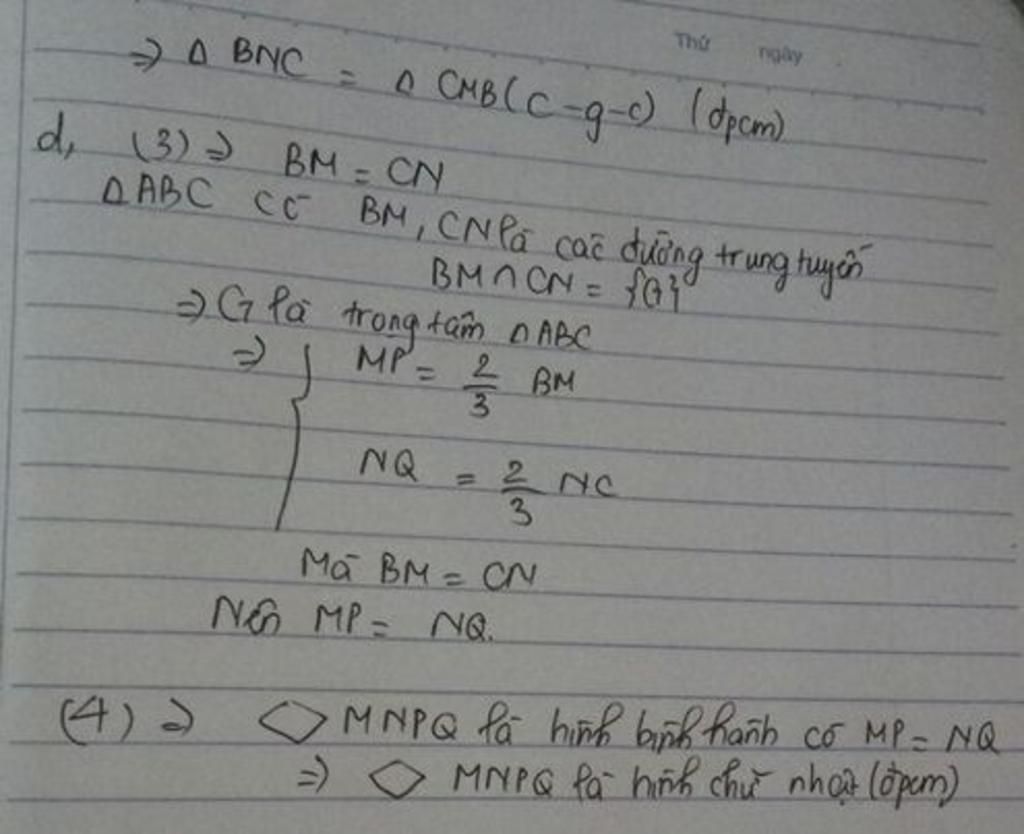 Thứ ngày
=> Δ BNC = Δ CMB (c-g-c) (đpcm)
d, (3) => BM = CN
ΔABC có BM, CN là các đường trung tuyến
BM ∩ CN = {G}
=> G là trọng tâm ΔABC
=> { MP = 2/3 BM
NQ = 2/3 NC
Mà BM = CN
Nên MP = NQ.
(4) => ◇ MNPQ là hình bình hành có MP = NQ
=> ◇ MNPQ là hình chữ nhật (đpcm)